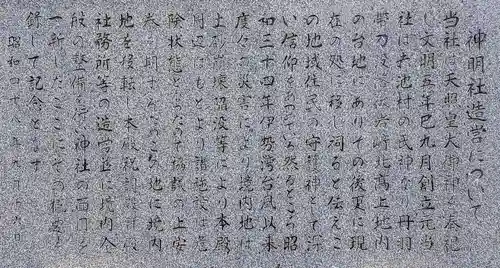 神明社造営について
当社は天照皇大御神を奉祀
し文明五年巳九月創立元当
社は 池村の氏神なり丹羽
郡 岩崎北高上地内
の台地にありその後更に現
在の処に移し祠ると伝えこ
の地域住民の守護神として深
い信仰をあつむ然るところ昭
和三十四年伊勢湾台風以来
度々の災害により境内地は
土 等により本殿
周辺はもとより諸施設は危
険状態となったので協議の上安
泰を期するためこの地に境内
地を移転し本殿祝詞殿拝殿
社務所等の造営並に境内全
般の整備を行い神社の面目を
一新したここにその概要を
録して記念とす
昭和四十八年九月 日